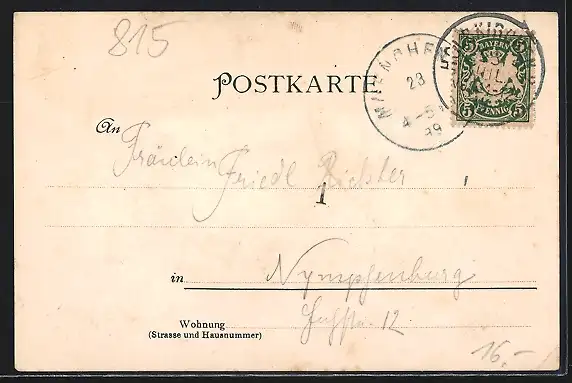 815
POSTKARTE
MUENCHEN
23
4-5
99
5 BAYERN 5
JUL
5 PFENNIG 5
An Fräulein Friedl Richter
1
in Nymphenburg
Wohnung 12
(Strasse und Hausnummer)
16.-